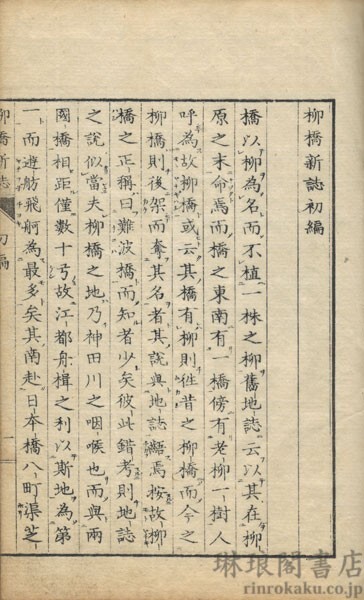 柳橋新誌初編
橋以柳為名而不植一株之柳舊地誌云以其在柳
原之末命焉而橋之東南有一橋傍有老柳一樹人
呼為故柳橋或云其橋有柳則往昔之柳橋而今之
柳橋則後架而奪其名者其說與地誌齟焉按故柳
橋之正稱曰難波橋而知者少矣彼此錯考則地誌
之說似當夫柳橋之地乃神田川之咽喉也而與兩
國橋相距僅數十弓故江都舟楫之利以斯地為第
一而遊舫飛舸為最多矣其南赴日本橋八町渠芝
柳橋新誌
初編
一
琳琅閣書店
rinrokaku.co.jp